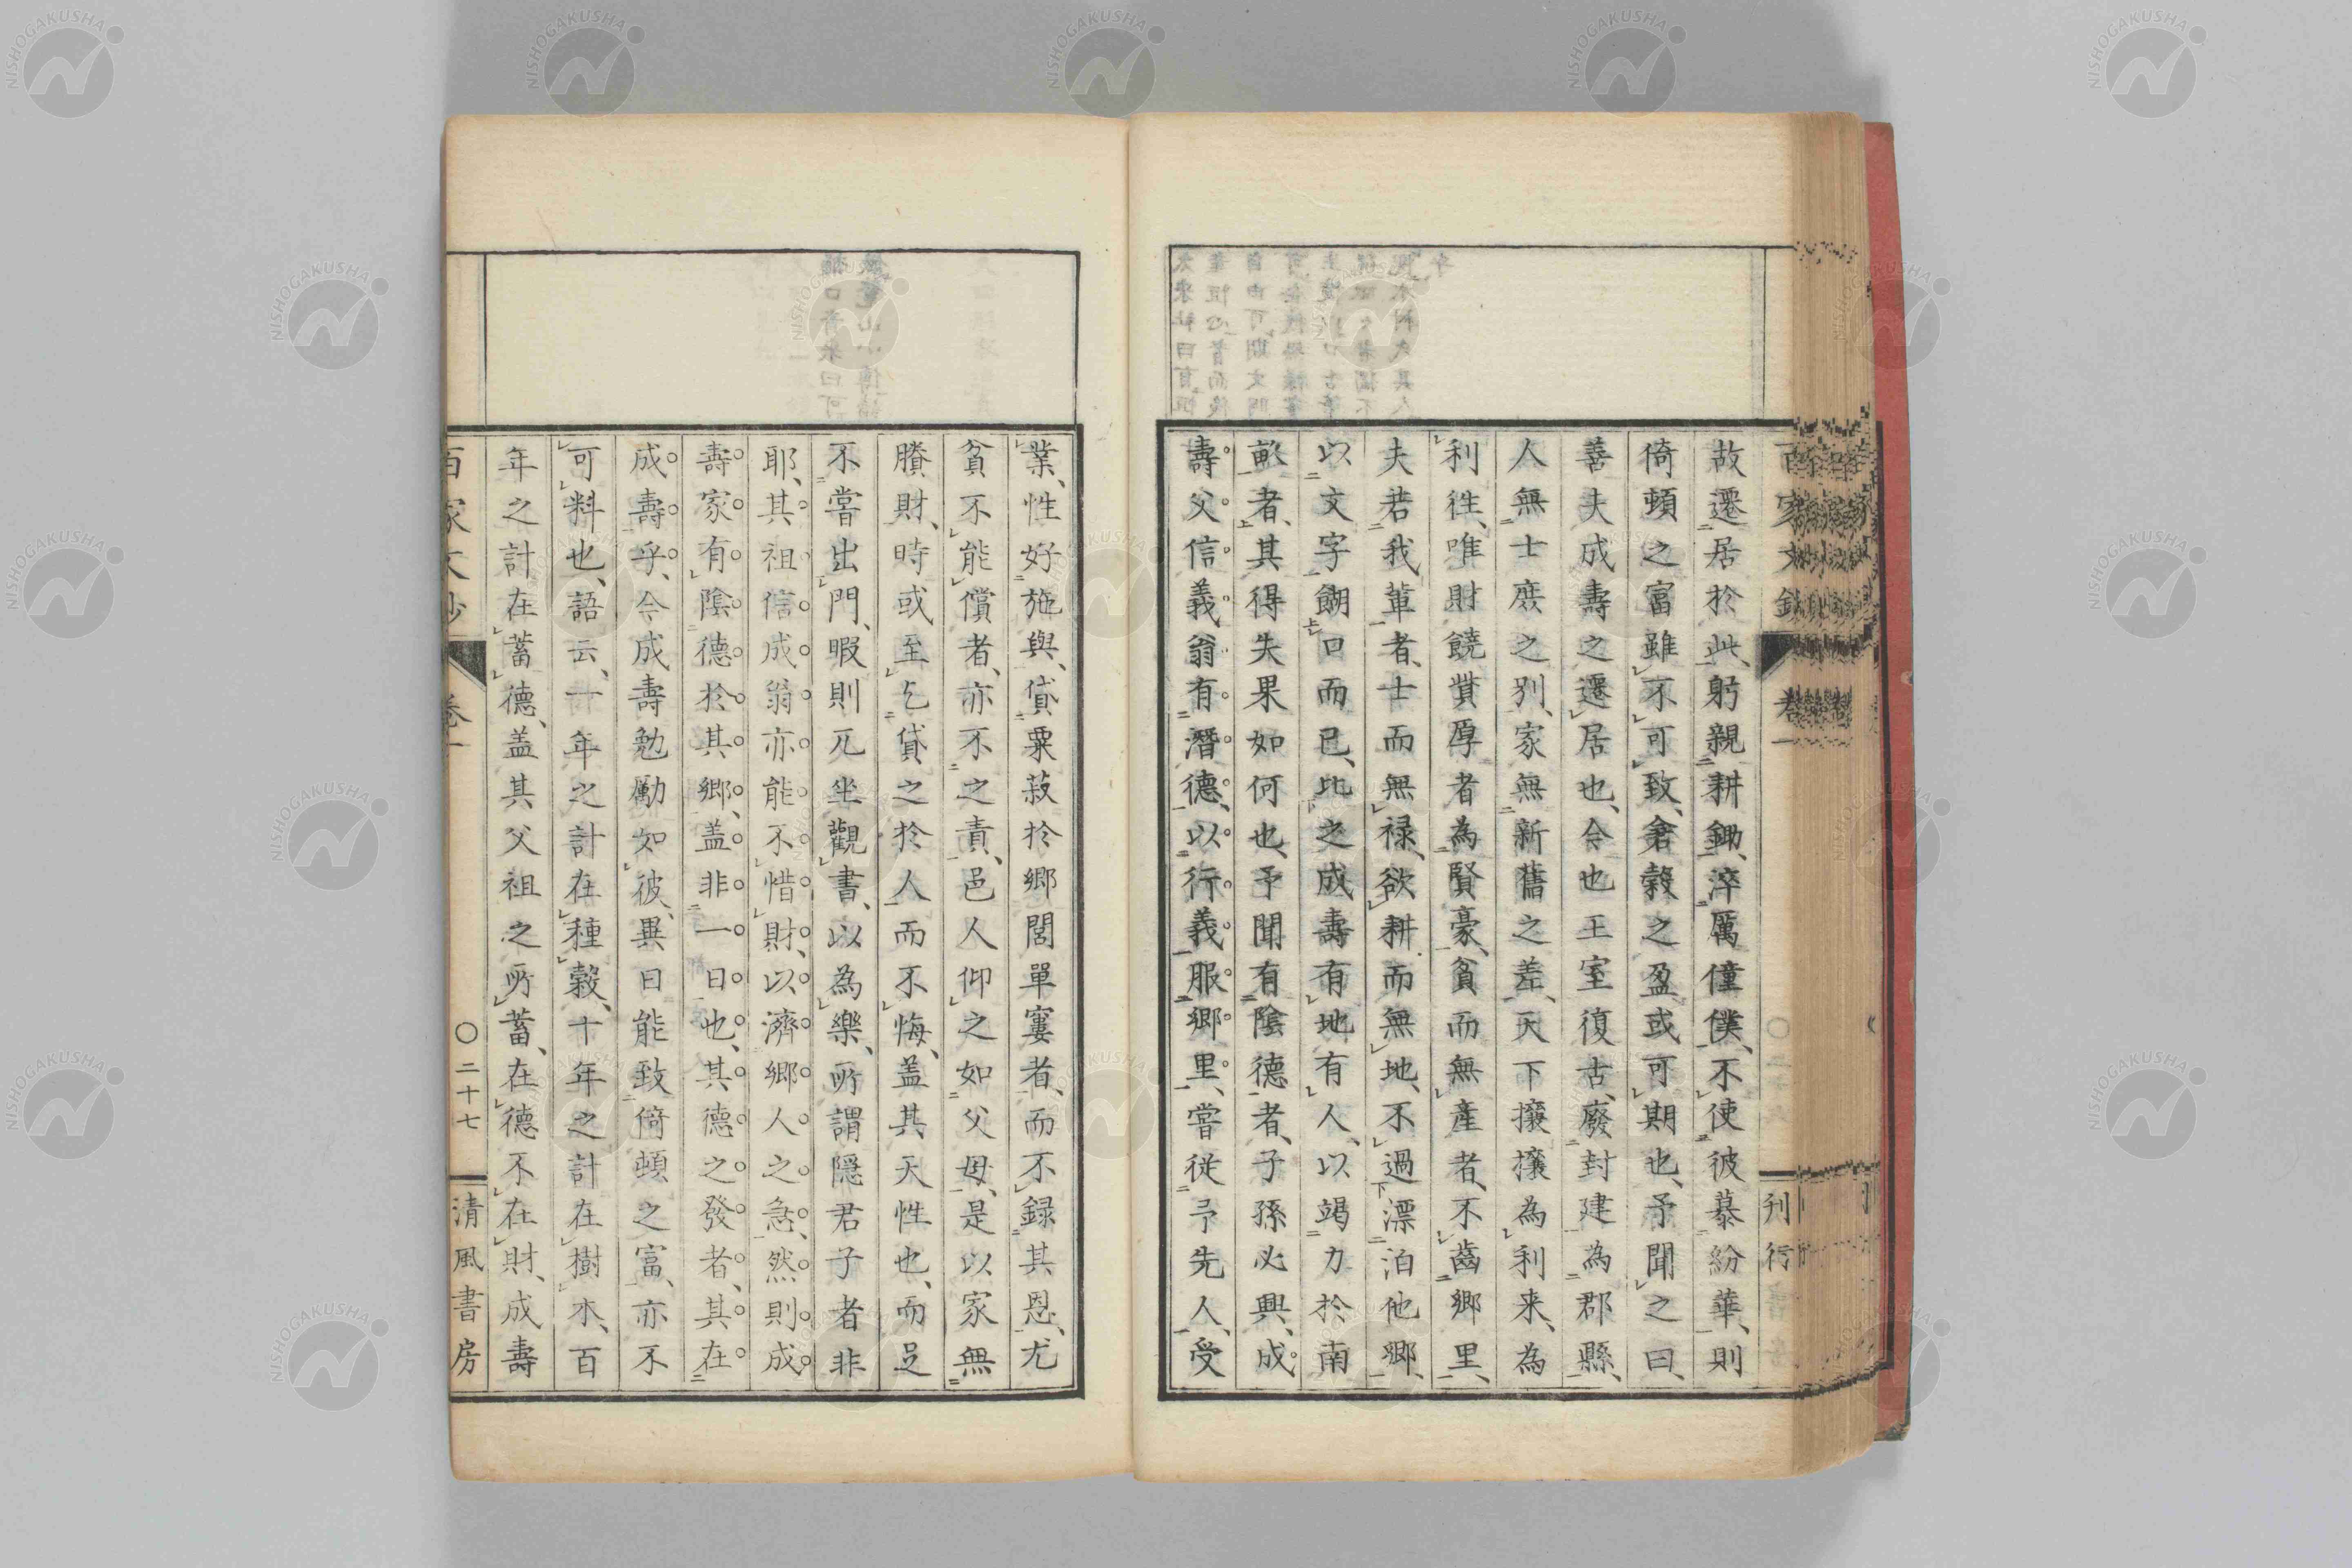 故遷居於此、躬親耕鋤、淬厲僮僕、不使彼慕紛華、則
倚頓之富雖不可致、倉穀之盈或可期也、予聞之曰、
善夫成壽之遷居也、今也王室復古、廢封建為郡縣、
人無士庶之別、家無新舊之差、天下攘攘為利来、為
利往、唯財饒貲厚者為賢豪、貧而無產者、不齒鄉里、
夫若我輩者、士而無禄、欲耕而無地、不過漂泊他鄉、
以文字餬口而已、比之成壽有地有人、以竭力於南
畝者、其得失果如何也、予聞有陰德者、子孫必興、成
壽父信義翁有潛德、以行義服鄉里、嘗從予先人、受
業、性好施與、貸粟菽於鄉閭單窶者、而不録其恩、尤
貧不能償者、亦不之責、邑人仰之如父母、是以家無
賸財、時或至乞貸之於人而不悔、盖其天性也、而足
不嘗出門、暇則兀坐觀書、以為樂、所謂隠君子者非
耶、其祖信成翁亦能不惜財、以濟鄉人之急、然則成
壽家有陰德於其鄉、盖非一日也、其德之發者、其在
成壽乎、今成壽勉勵如彼、異日能致倚頓之富、亦不
可料也、語云、一年之計在種穀、十年之計在樹木、百
年之計在蓄德、盖其父祖之所蓄、在德不在財、成壽
百家文鈔
卷一
〇二十七
清風書房
刊行
NISHOGAKUSHA